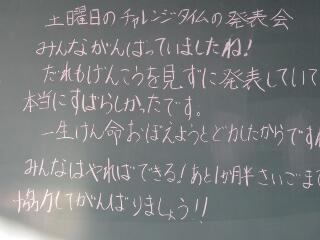 土曜日のチャレンジタイムの発表会
みんながんばっていましたね!
だれもげんこうを見ずに発表していて
本当にすばらしかったです。
一生けん命おぼえようとどりょくしたからですね
みんなはやればできる!あと1か月半さいごまで
協力してがんばりましょう!!